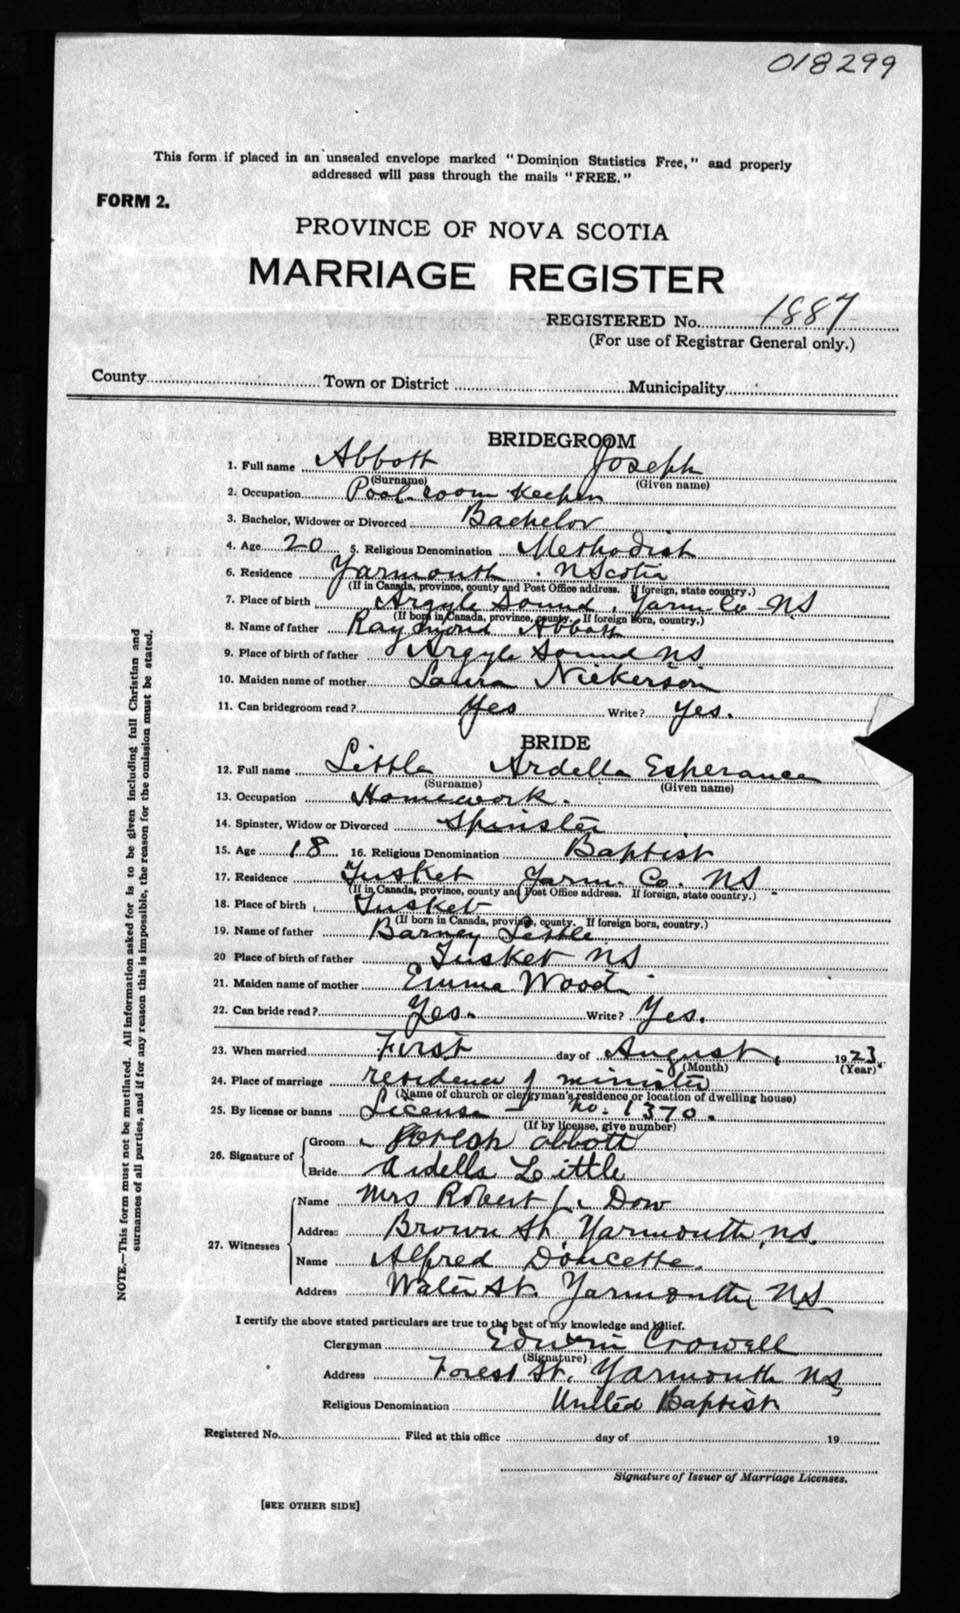 018299
This form if placed in an unsealed envelope marked "Dominion Statistics Free," and properly
addressed will pass through the mails "FREE."
FORM 2.
PROVINCE OF NOVA SCOTIA
MARRIAGE REGISTER
REGISTERED No. 1887
(For use of Registrar General only.)
County Town or District Municipality
BRIDEGROOM
1. Full name Abbott Joseph
(Surname) (Given name)
2. Occupation Pool room Keeper
3. Bachelor, Widower or Divorced Bachelor
4. Age 20 5. Religious Denomination Methodist
6. Residence Yarmouth N Scotia
(If in Canada, province, county and Post Office address. If foreign, state country.)
7. Place of birth Argyle Sound, Yarm. Co NS
(If born in Canada, province, county. If foreign born, country.)
8. Name of father Raymond Abbott
9. Place of birth of father Argyle Sound NS
10. Maiden name of mother Laura Nickerson
11. Can bridegroom read? Yes Write? Yes.
BRIDE
12. Full name Little Ardella Esperance
(Surname) (Given name)
13. Occupation Homework.
14. Spinster, Widow or Divorced Spinster
15. Age 18 16. Religious Denomination Baptist
17. Residence Tusket Yarm. Co. NS.
(If in Canada, province, county and Post Office address. If foreign, state country.)
18. Place of birth Tusket
(If born in Canada, province, county. If foreign born, country.)
19. Name of father Barney Little
20 Place of birth of father Tusket NS
21. Maiden name of mother Emma Wood
22. Can bride read? Yes. Write? Yes.
23. When married First day of August, 1923
(Month) (Year)
24. Place of marriage residence of minister
(Name of church or clergyman's residence or location of dwelling house)
25. By license or banns License - no. 1370.
(If by license, give number)
26. Signature of Groom Joseph Abbott
Bride Ardella Little
27. Witnesses Name Mrs Robert J. Dow
Address Brown St, Yarmouth, NS.
Name Alfred Doucette.
Address Water St. Yarmouth, NS
I certify the above stated particulars are true to the best of my knowledge and belief.
Clergyman Edwin Crowell
(Signature)
Address Forest St. Yarmouth NS
Religious Denomination United Baptist
Registered No. Filed at this office day of 19
Signature of Issuer of Marriage Licenses.
[SEE OTHER SIDE]
NOTE.—This form must not be mutilated. All information asked for is to be given including full Christian and
surnames of all parties, and if for any reason this is impossible, the reason for the omission must be stated.